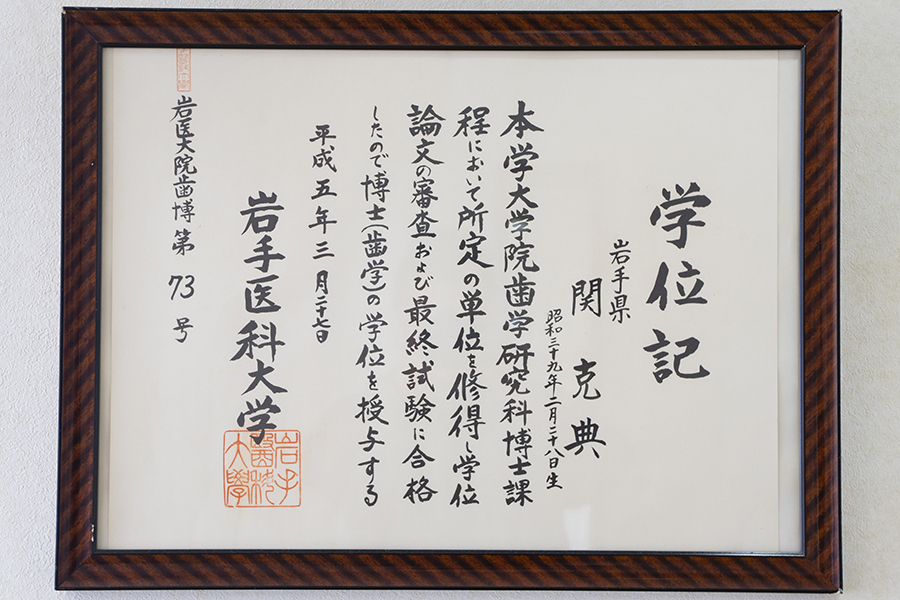 学位記
岩手県
関克典
昭和三十九年二月二十八日生
本学大学院歯学研究科博士課
程において所定の単位を修得し学位
論文の審査および最終試験に合格
したので博士(歯学)の学位を授与する
平成五年三月二十七日
岩手医科大学
岩手
醫科
大學
岩医大院歯博第73号